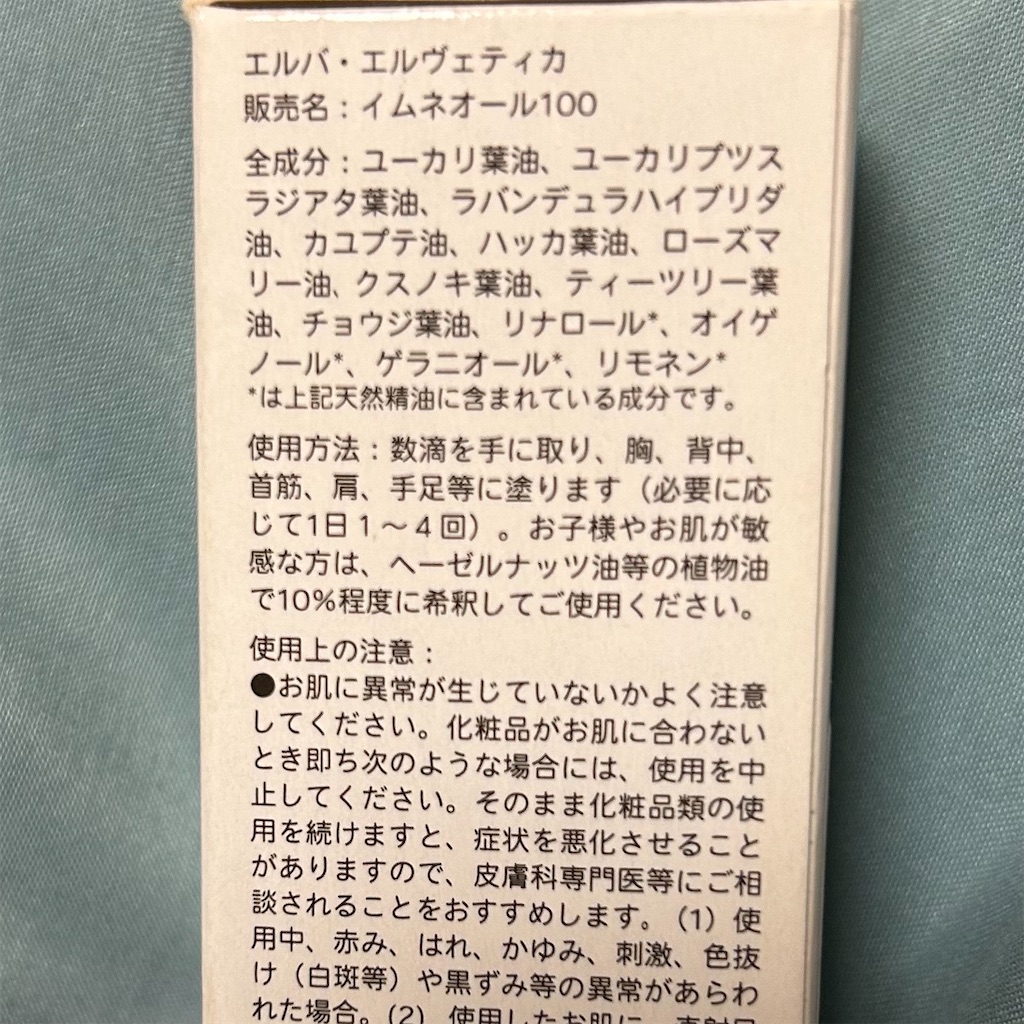 エルバ・エルヴェティカ
販売名：イムネオール100
全成分：ユーカリ葉油、ユーカリプツス
ラジアタ葉油、ラバンデュラハイブリダ
油、カユプテ油、ハッカ葉油、ローズマ
リー油、クスノキ葉油、ティーツリー葉
油、チョウジ葉油、リナロール*、オイゲ
ノール*、ゲラニオール*、リモネン*
*は上記天然精油に含まれている成分です。
使用方法：数滴を手に取り、胸、背中、
首筋、肩、手足等に塗ります（必要に応
じて1日1～4回）。お子様やお肌が敏
感な方は、ヘーゼルナッツ油等の植物油
で10%程度に希釈してご使用ください。
使用上の注意：
●お肌に異常が生じていないかよく注意
してください。化粧品がお肌に合わない
とき即ち次のような場合には、使用を中
止してください。そのまま化粧品類の使
用を続けますと、症状を悪化させること
がありますので、皮膚科専門医等にご相
談されることをおすすめします。（1）使
用中、赤み、はれ、かゆみ、刺激、色抜
け（白斑等）や黒ずみ等の異常があらわ
れた場合。（2）使用したお肌に、直射日